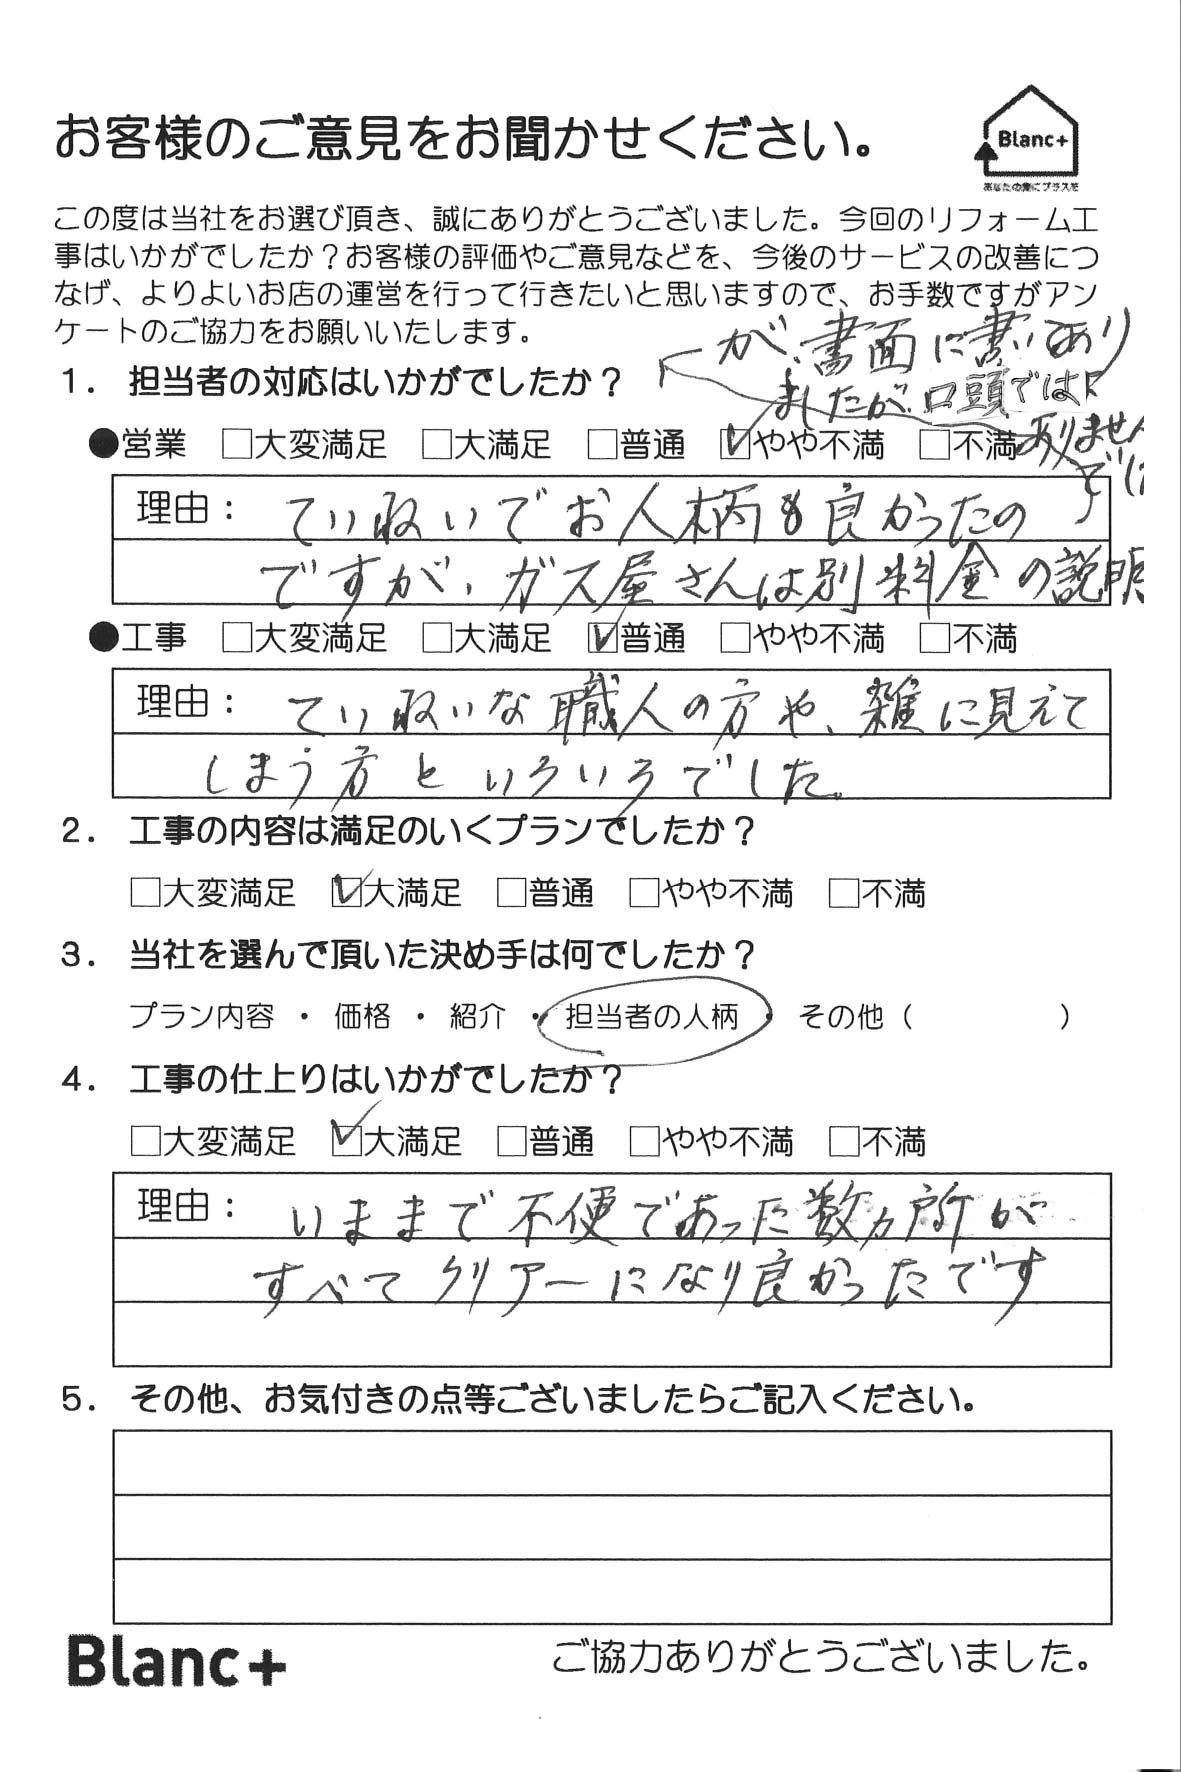 お客様のご意見をお聞かせください。
Blanc+
あなたの家にプラスを
この度は当社をお選び頂き、誠にありがとうございました。今回のリフォーム工
事はいかがでしたか？お客様の評価やご意見などを、今後のサービスの改善につ
なげ、よりよいお店の運営を行って行きたいと思いますので、お手数ですがアン
ケートのご協力をお願いいたします。
1． 担当者の対応はいかがでしたか？
●営業 □大変満足 □大満足 □普通 ☑やや不満 □不満
理由： ていねいでお人柄も良かったの
ですが、ガス屋さんは別料金の説明
が、書面に書いてあり
ましたが口頭では
ありません
でした
●工事 □大変満足 □大満足 ☑普通 □やや不満 □不満
理由： ていねいな職人の方や、雑に見えて
しまう方といろいろでした。
2． 工事の内容は満足のいくプランでしたか？
□大変満足 ☑大満足 □普通 □やや不満 □不満
3． 当社を選んで頂いた決め手は何でしたか？
プラン内容 ・ 価格 ・ 紹介 ・ 担当者の人柄 ・ その他（ ）
4． 工事の仕上りはいかがでしたか？
□大変満足 ☑大満足 □普通 □やや不満 □不満
理由： いままで不便であった数ヵ所が
すべてクリアーになり良かったです
5． その他、お気付きの点等ございましたらご記入ください。
Blanc+ ご協力ありがとうございました。